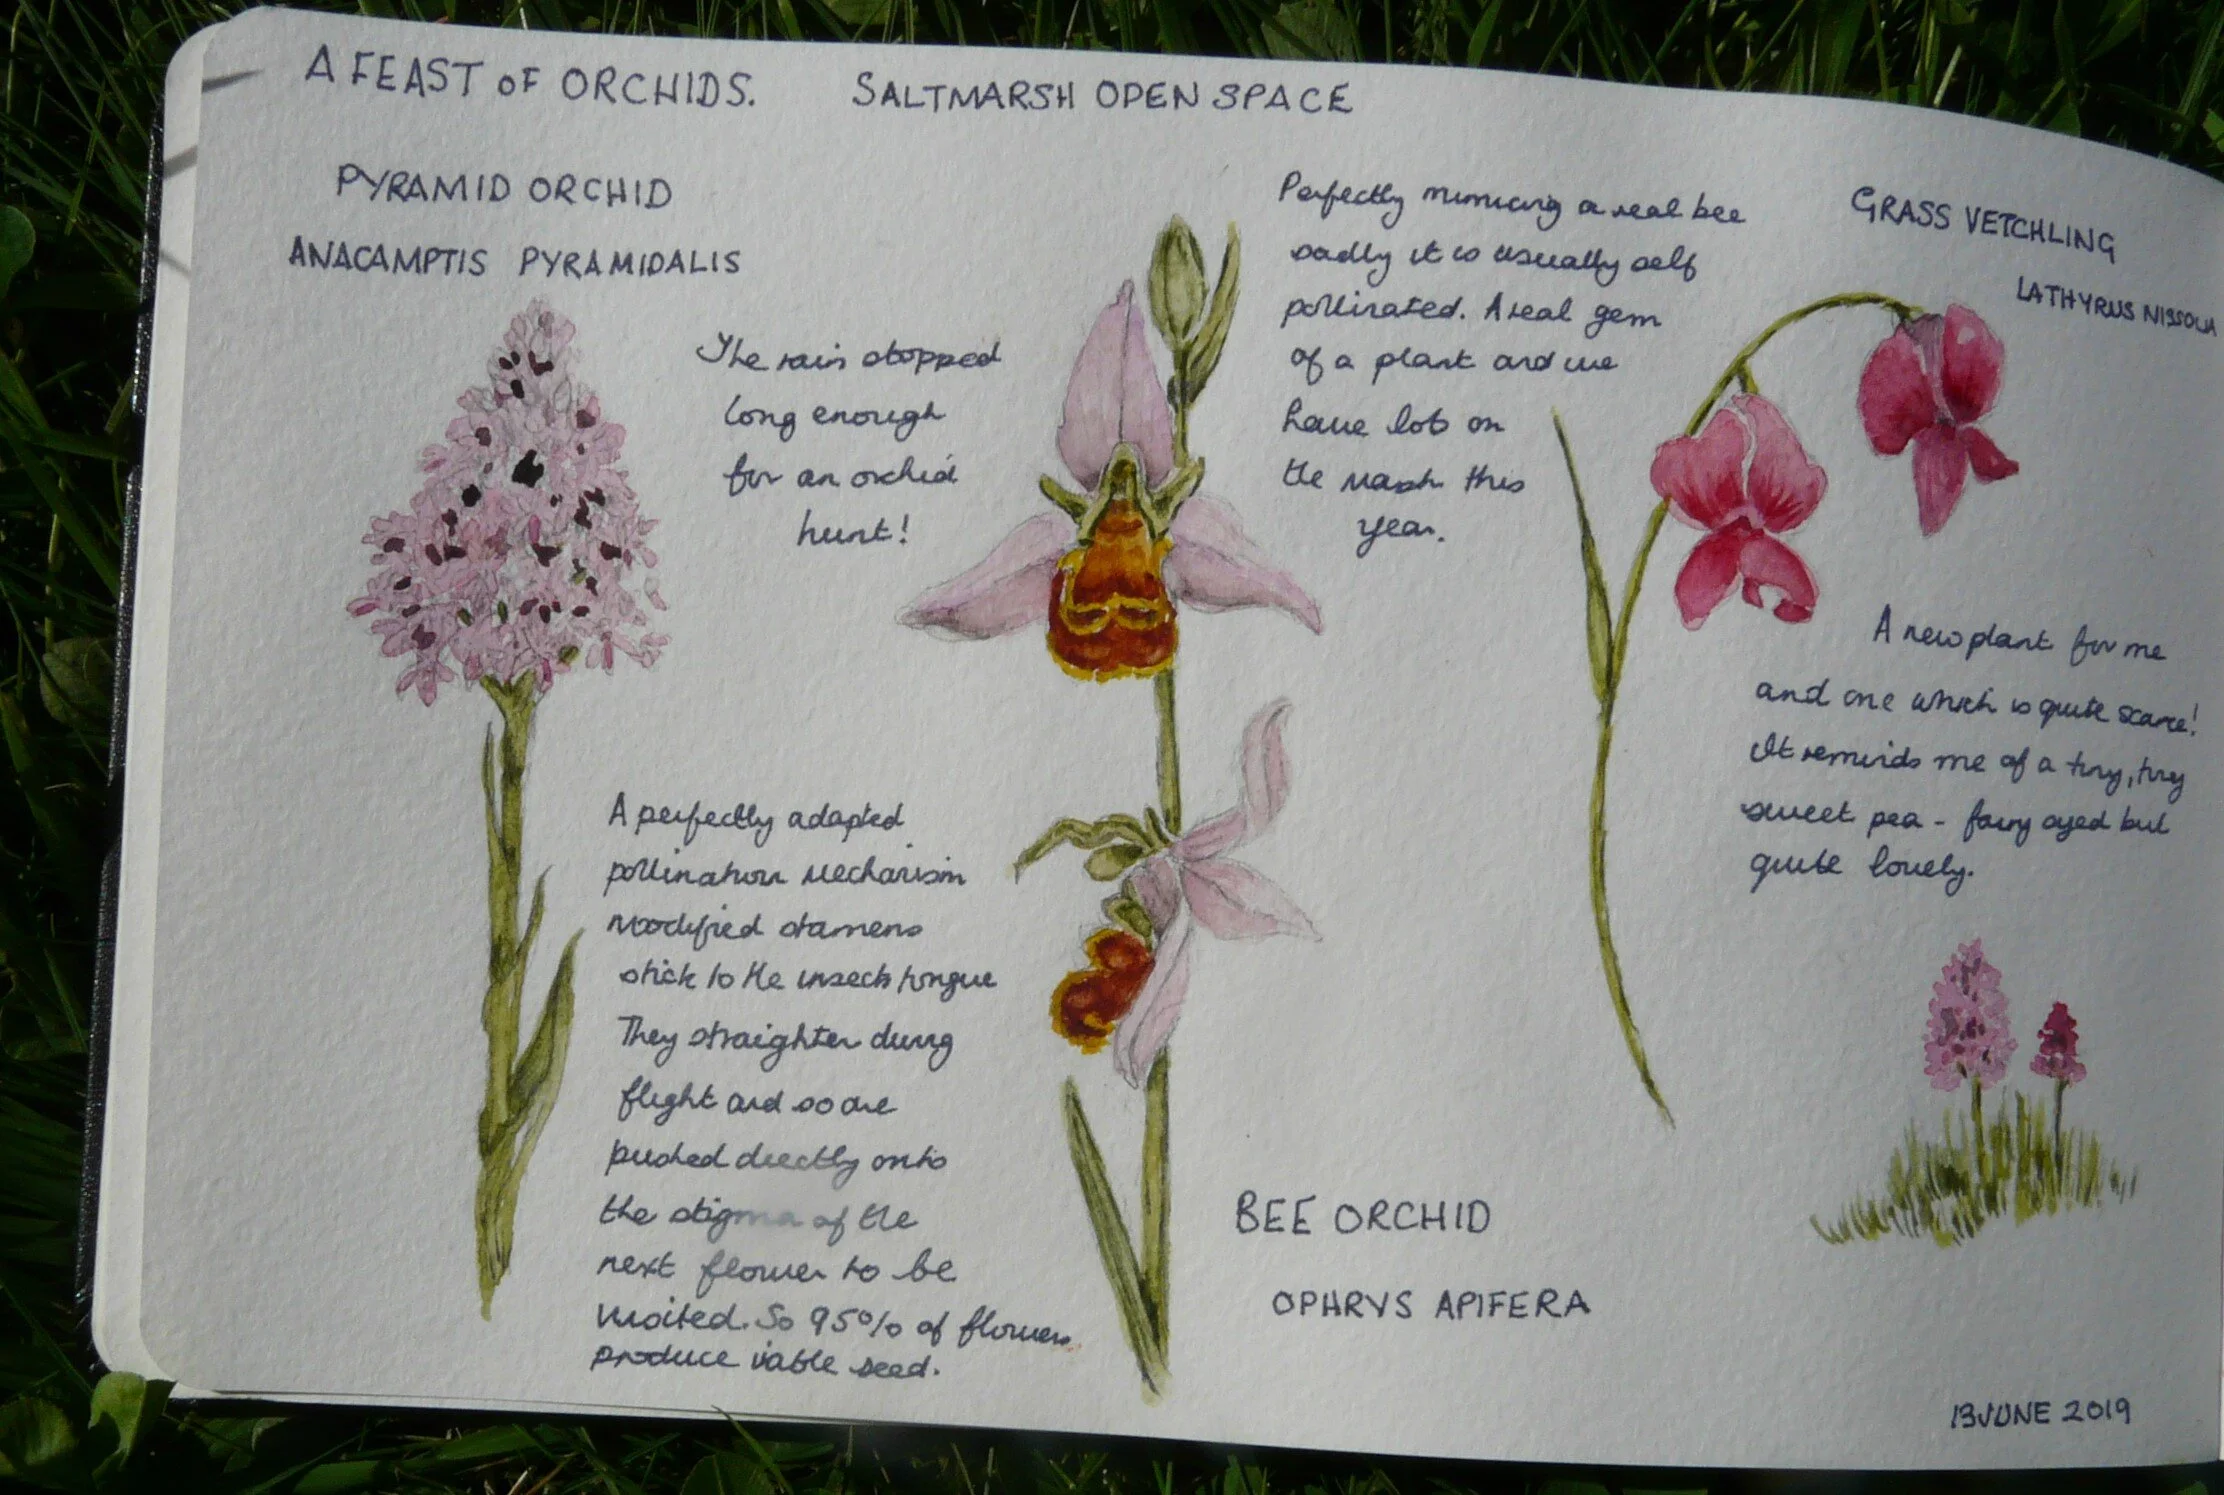 A FEAST OF ORCHIDS. SALTMARSH OPEN SPACE
PYRAMID ORCHID
ANACAMPTIS PYRAMIDALIS
The rain stopped
long enough
for an orchid
hunt!
A perfectly adapted
pollination mechanism
modified stamens
stick to the insects tongue
They straighten during
flight and so are
pushed directly onto
the stigma of the
next flower to be
visited. So 95% of flowers
produce viable seed.
Perfectly mimicing a real bee
sadly it is usually self
pollinated. A real gem
of a plant and we
have lots on
the marsh this
year.
BEE ORCHID
OPHRYS APIFERA
GRASS VETCHLING
LATHYRUS NISSOLIA
A new plant for me
and one which is quite scarce!
It reminds me of a tiny, tiny
sweet pea - fairy sized but
quite lovely.
13 JUNE 2019